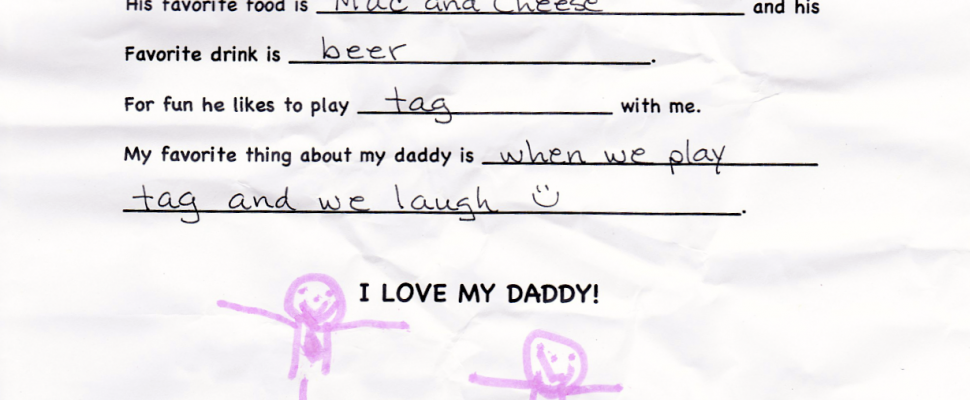 His favorite food is Mac and Cheese and his
Favorite drink is beer.
For fun he likes to play tag with me.
My favorite thing about my daddy is when we play
tag and we laugh ü.
I LOVE MY DADDY!